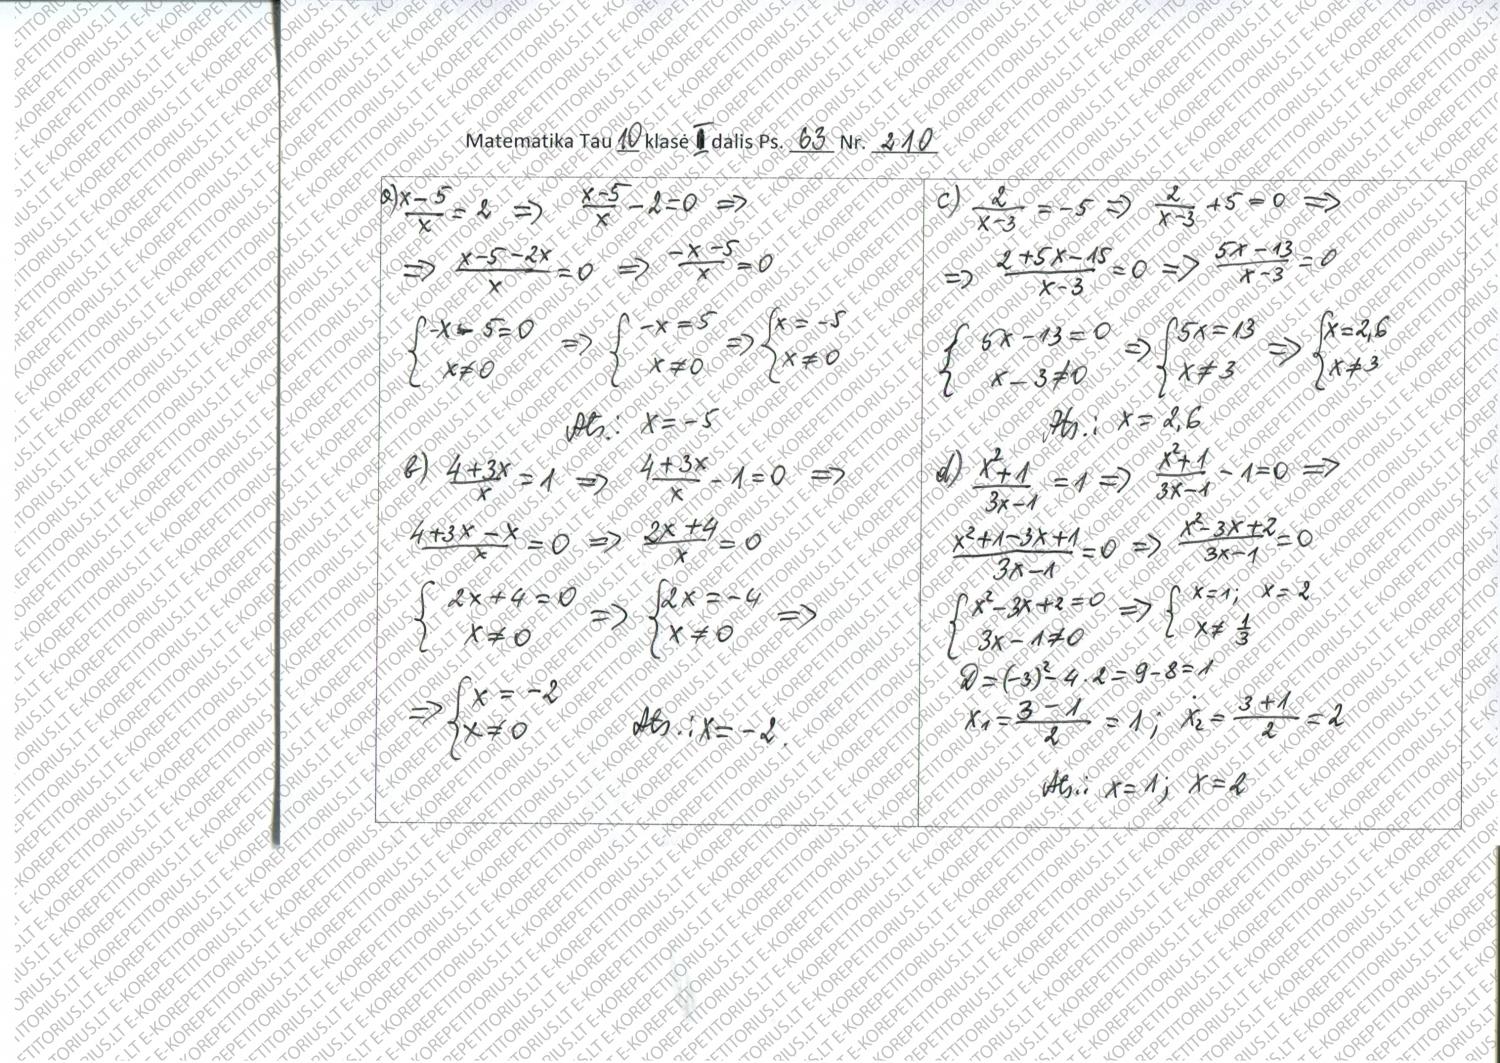 Matematika Tau 10 klasė I dalis Ps. 63 Nr. 210
a) (x-5)/x = 2 => (x-5)/x - 2 = 0 =>
=> (x-5-2x)/x = 0 => (-x-5)/x = 0
{ -x-5=0 ; x≠0 => { -x=5 ; x≠0 => { x=-5 ; x≠0
Ats.: x = -5
b) (4+3x)/x = 1 => (4+3x)/x - 1 = 0 =>
(4+3x-x)/x = 0 => (2x+4)/x = 0
{ 2x+4=0 ; x≠0 => { 2x=-4 ; x≠0 =>
=> { x=-2 ; x≠0 Ats.: x=-2.
c) 2/(x-3) = -5 => 2/(x-3) + 5 = 0 =>
=> (2+5x-15)/(x-3) = 0 => (5x-13)/(x-3) = 0
{ 5x-13=0 ; x-3≠0 => { 5x=13 ; x≠3 => { x=2,6 ; x≠3
Ats.: x = 2,6
d) (x²+1)/(3x-1) = 1 => (x²+1)/(3x-1) - 1 = 0 =>
(x²+1-3x+1)/(3x-1) = 0 => (x²-3x+2)/(3x-1) = 0
{ x²-3x+2=0 ; 3x-1≠0 => { x=1; x=2 ; x≠1/3
D=(-3)²-4·2=9-8=1
x₁=(3-1)/2 = 1; x₂=(3+1)/2 = 2
Ats.: x=1; x=2
E-KOREPETITORIUS.LT